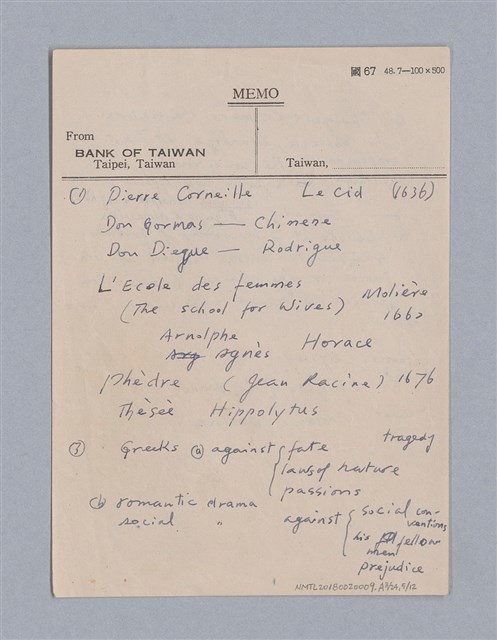 國 67 48.7—100×500
MEMO
From
BANK OF TAIWAN
Taipei, Taiwan
Taiwan,
① Pierre Corneille Le Cid (1636)
Don Gormas — Chimene
Don Diegue — Rodrigue
L'Ecole des femmes
(The school for Wives) Molière 1662
Arnolphe
Agnès Horace
Phèdre (Jean Racine) 1676
Thèsèe Hippolytus
③ Greeks ⓐ against { fate tragedy
laws of nature
passions
ⓑ romantic drama
social " against { social con-
ventions
his fellow
men
prejudice
NMTL20180020009, A3/24, 5/12